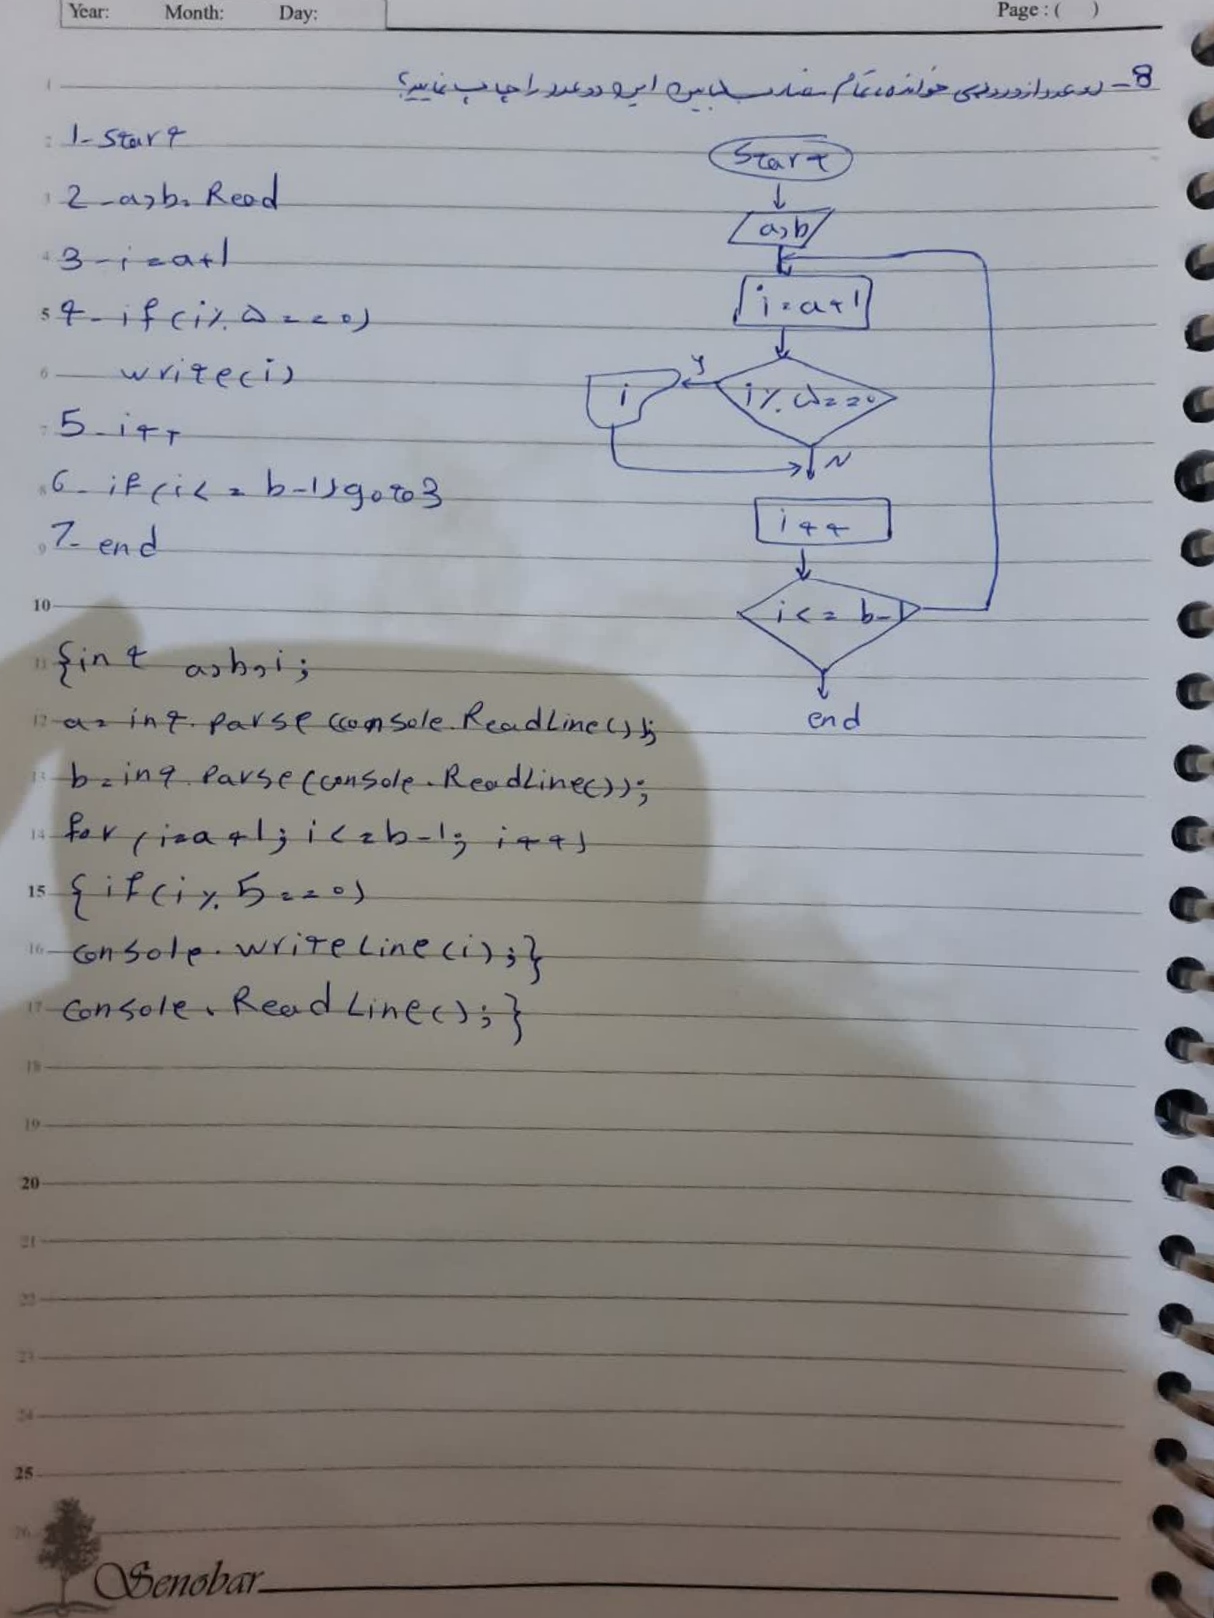 Year: Month: Day: Page : ( )
8- دو عدد از ورودی خوانده، تمام مضارب ۵ مابین این دو عدد را چاپ نمایید؟
1- Start
2- a,b. Read
3- i=a+1
4- if(i%۵==0)
write(i)
5- i++
6- if(i<=b-1)goto3
7- end
Start
a,b
i=a+1
y
i
i%۵==0
N
i++
i<=b-1
end
{int a,b,i;
a=int.parse(console.ReadLine());
b=int.Parse(console.ReadLine());
for(i=a+1;i<=b-1;i++)
{if(i%5==0)
console.writeLine(i);}
console.ReadLine();}
1
2
3
4
5
6
7
8
9
10
11
12
13
14
15
16
17
18
19
20
21
22
23
24
25
26
Senobar